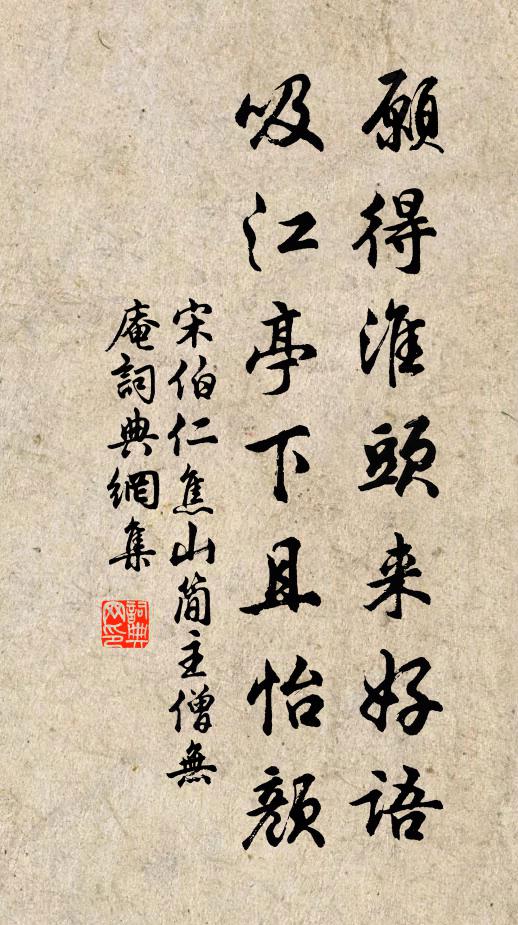 願得淮頭来好語
吸江亭下且怡顏
宋伯仁焦山簡主僧無
庵詞典網集
詞典网印